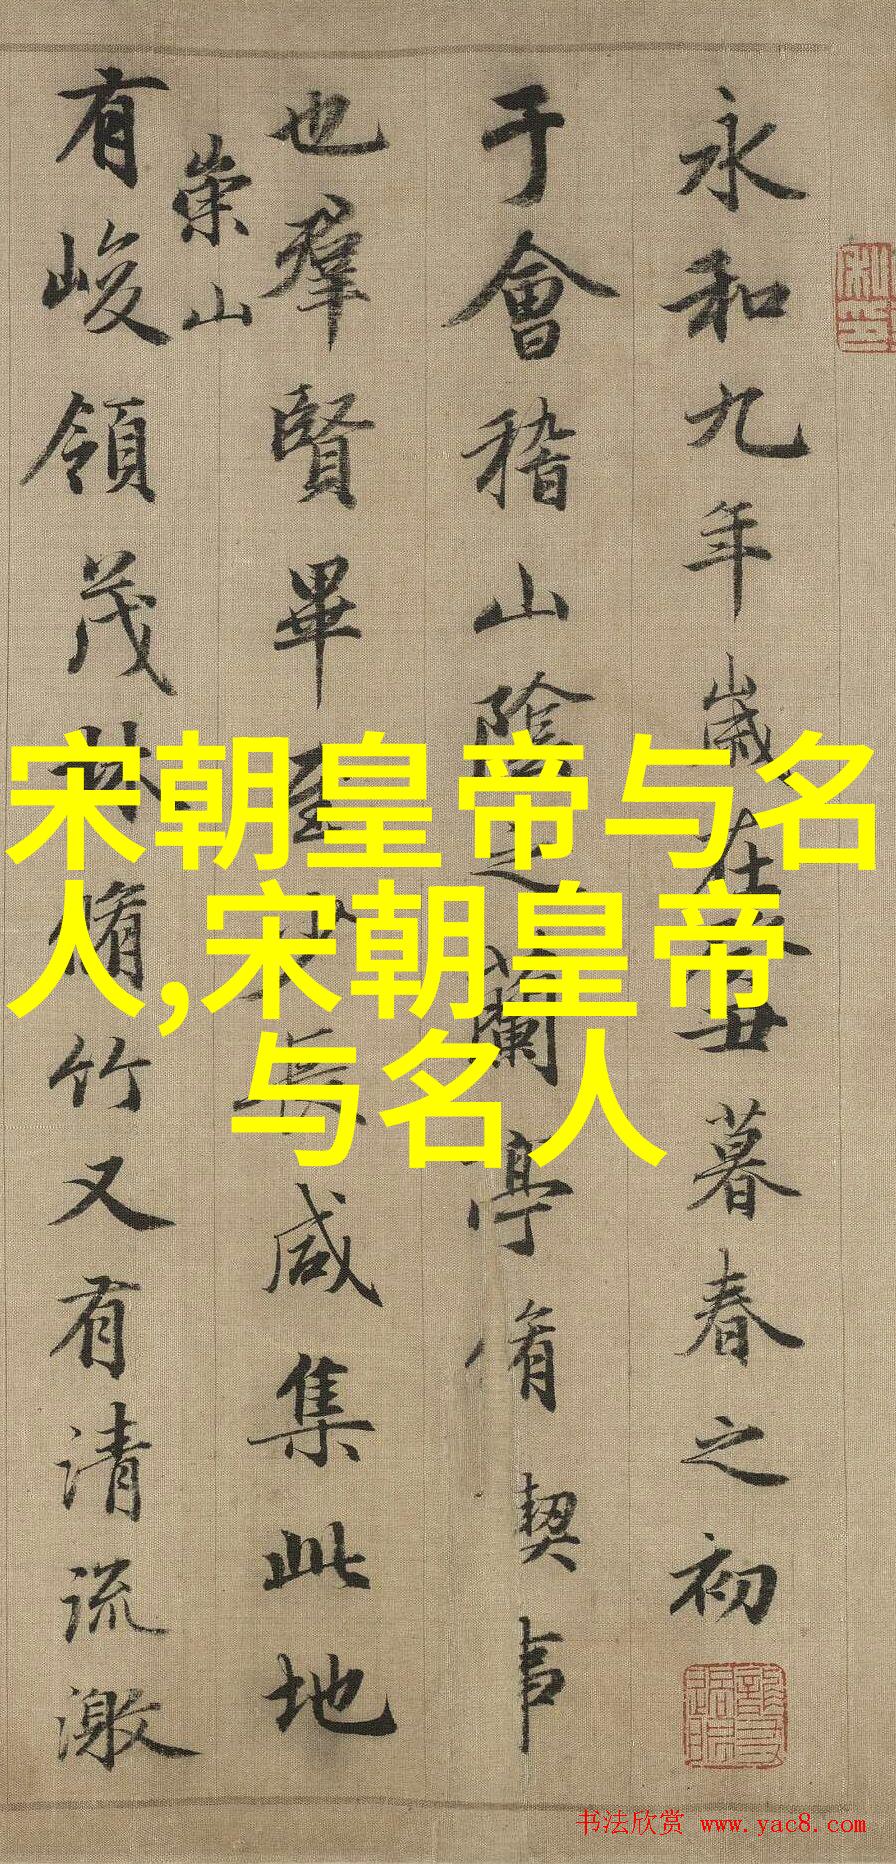 永和九年歲在癸丑暮春之初
于會稽山陰之蘭亭脩契事
也羣賢畢至少長咸集此地
崇山
有峻領茂林脩竹又有清流激
宋朝皇帝与名
人,宋朝皇帝
与名人
书法欣赏 www.yac8.com